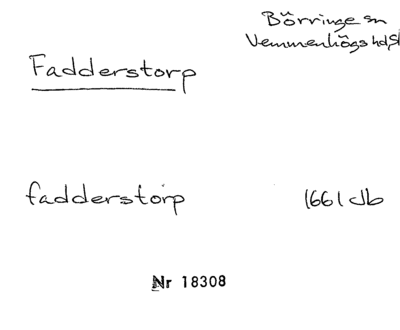 Börringe sn
Vemmenhögs hd, Sk
Fadderstorp
fadderstorp 1661 Jb
Nr 18308